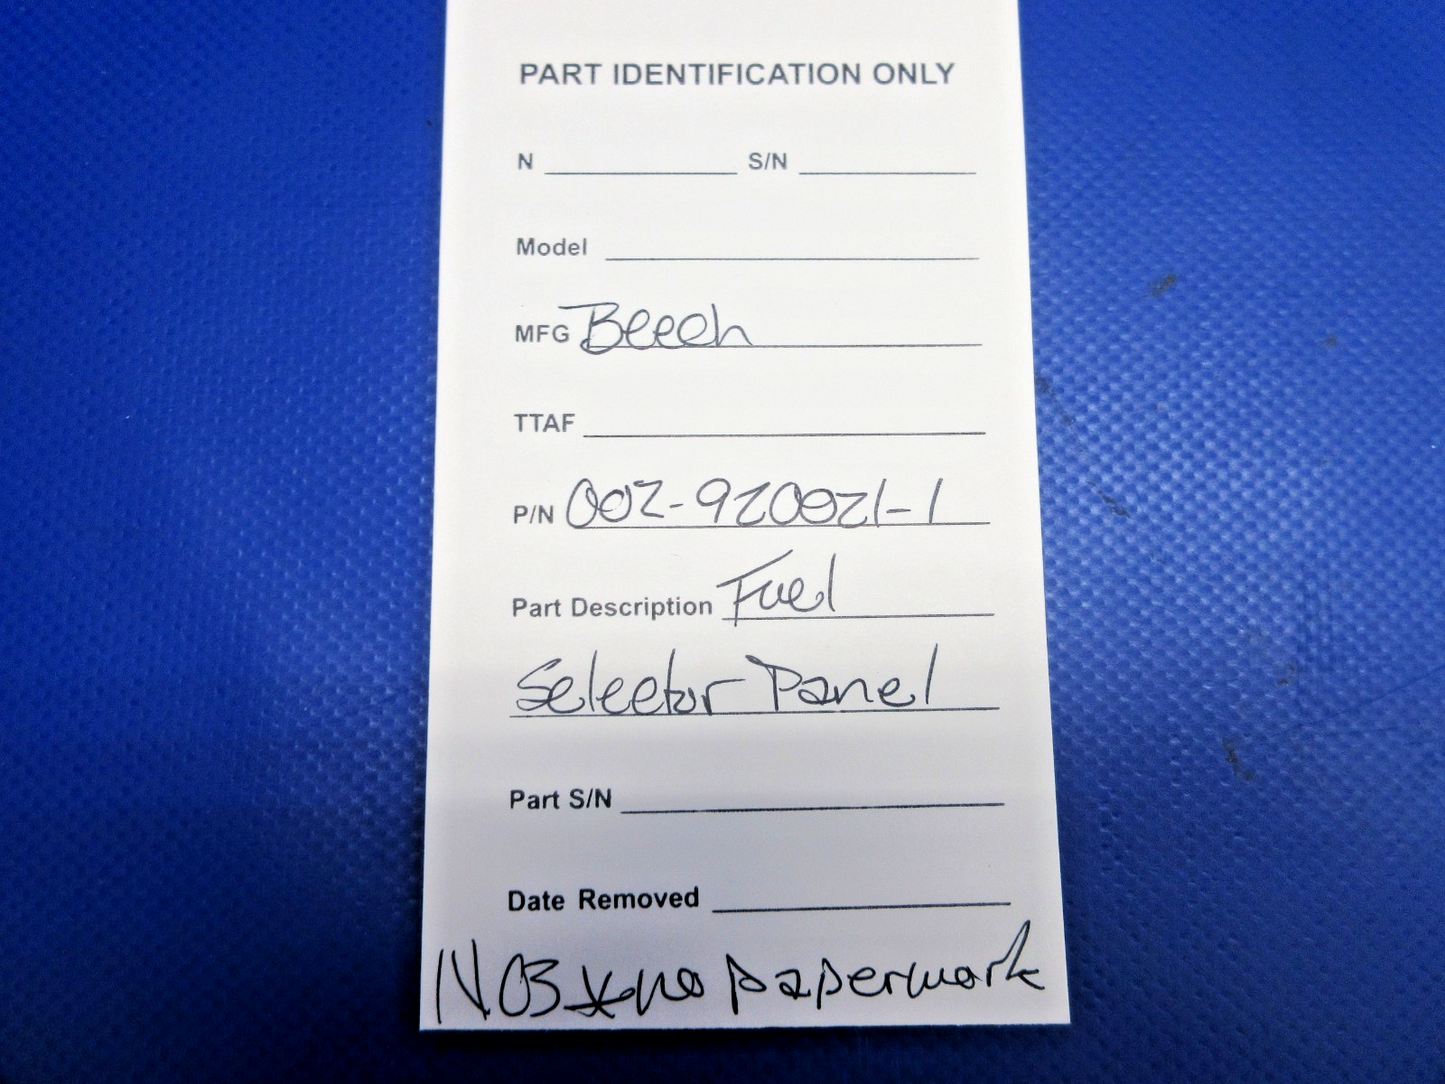 PART IDENTIFICATION ONLY
N S/N
Model
MFG Beech
TTAF
P/N 002-920021-1
Part Description Fuel
Selector Panel
Part S/N
Date Removed
NOS *no paperwork